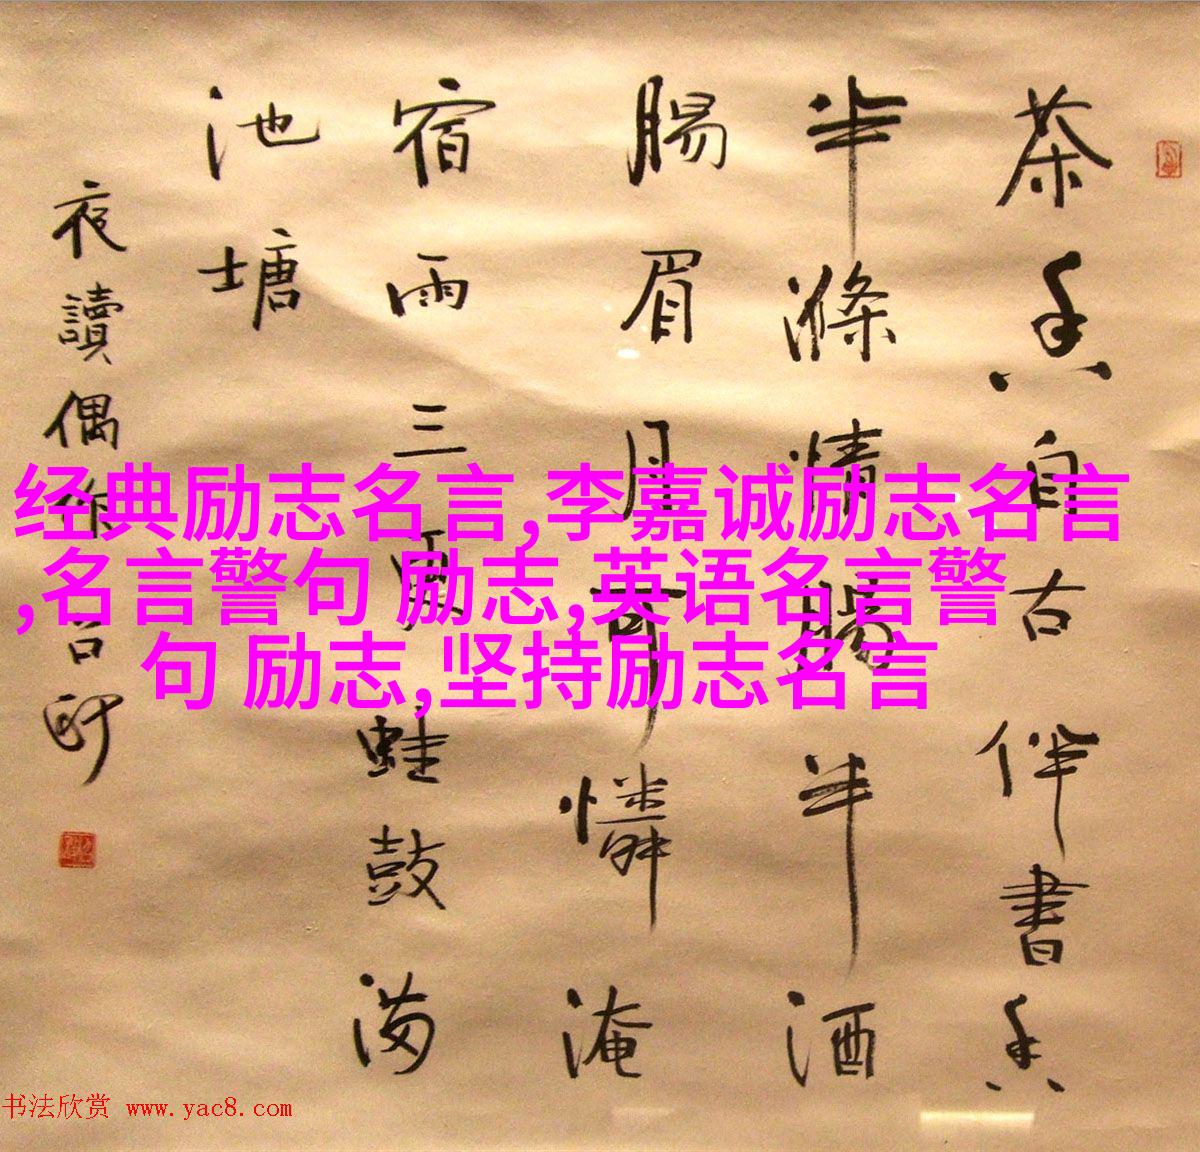 茶香自古伴書香
半滌情腸半酒
腸眉月可憐淹
宿雨三更蛙鼓滿
池塘
夜讀偶作
经典励志名言,李嘉诚励志名言
,名言警句 励志,英语名言警
句 励志,坚持励志名言
书法欣赏 www.yac8.com